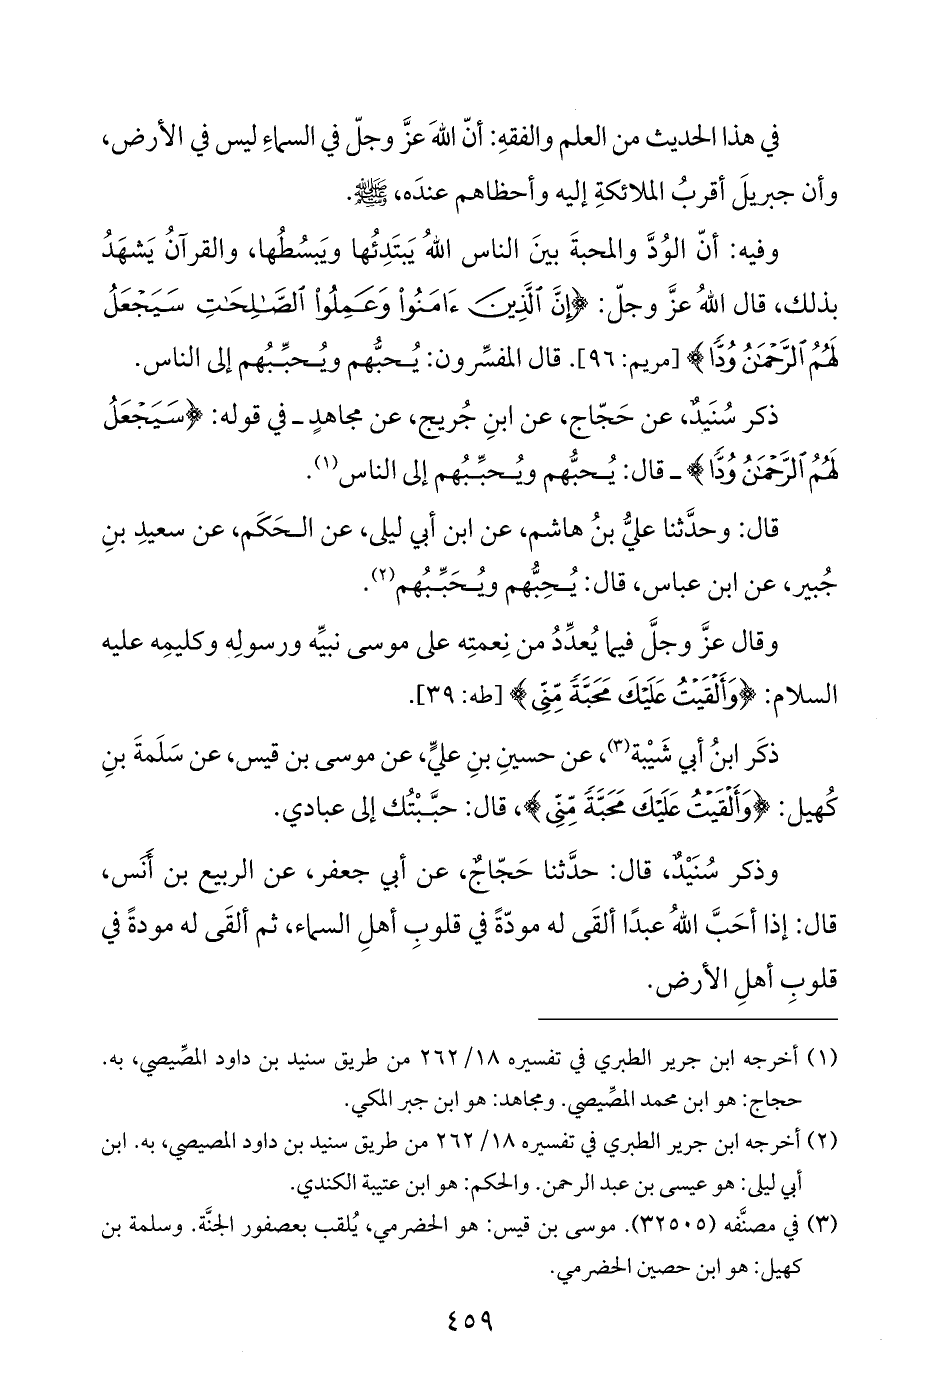 في هذا الحديث من العلم والفقهِ: أنّ اللهَ عزَّ وجلّ في السماءِ ليس في الأرض،
وأن جبريلَ أقربُ الملائكةِ إليه وأحظاهم عندَه، ﷺ.
وفيه: أنّ الوُدَّ والمحبةَ بينَ الناس اللهُ يَبتَدِئُها ويَبسُطُها، والقرآنُ يَشهَدُ
بذلك، قال اللهُ عزَّ وجلّ: ﴿إِنَّ ٱلَّذِينَ ءَامَنُوا۟ وَعَمِلُوا۟ ٱلصَّـٰلِحَـٰتِ سَيَجْعَلُ
لَهُمُ ٱلرَّحْمَـٰنُ وُدًّا﴾ [مريم: ٩٦]. قال المفسِّرون: يُـحبُّهم ويُـحبِّـبُهم إلى الناس.
ذكر سُنَيدٌ، عن حَجّاج، عن ابنِ جُريج، عن مجاهدٍ ـ في قوله: ﴿سَيَجْعَلُ
لَهُمُ ٱلرَّحْمَـٰنُ وُدًّا﴾ ـ قال: يُـحبُّهم ويُـحبِّـبُهم إلى الناس(١).
قال: وحدَّثنا عليُّ بنُ هاشم، عن ابن أبي ليلى، عن الـحَكَم، عن سعيدِ بنِ
جُبير، عن ابن عباس، قال: يُـحِبُّهم ويُـحَبِّـبُهم(٢).
وقال عزَّ وجلَّ فيما يُعدِّدُ من نِعمتِه على موسى نبيِّه ورسولِه وكليمِه عليه
السلام: ﴿وَأَلْقَيْتُ عَلَيْكَ مَحَبَّةً مِّنِّى﴾ [طه: ٣٩].
ذكَر ابنُ أبي شَيْبة(٣)، عن حسينِ بنِ عليٍّ، عن موسى بن قيس، عن سَلَمةَ بنِ
كُهيل: ﴿وَأَلْقَيْتُ عَلَيْكَ مَحَبَّةً مِّنِّى﴾، قال: حبَّـبْتُك إلى عبادي.
وذكر سُنَيْدٌ، قال: حدَّثنا حَجّاجٌ، عن أبي جعفر، عن الربيع بن أَنَس،
قال: إذا أحَبَّ اللهُ عبدًا ألقَى له مودّةً في قلوبِ أهلِ السماء، ثم ألقَى له مودةً في
قلوبِ أهلِ الأرض.
(١) أخرجه ابن جرير الطبري في تفسيره ١٨/ ٢٦٢ من طريق سنيد بن داود المصِّيصي، به.
حجاج: هو ابن محمد المصِّيصي. ومجاهد: هو ابن جبر المكي.
(٢) أخرجه ابن جرير الطبري في تفسيره ١٨/ ٢٦٢ من طريق سنيد بن داود المصيصي، به. ابن
أبي ليلى: هو عيسى بن عبد الرحمن. والحكم: هو ابن عتيبة الكندي.
(٣) في مصنَّفه (٣٢٥٠٥). موسى بن قيس: هو الحضرمي، يُلقب بعصفور الجنَّة. وسلمة بن
كهيل: هو ابن حصين الحضرمي.
٤٥٩